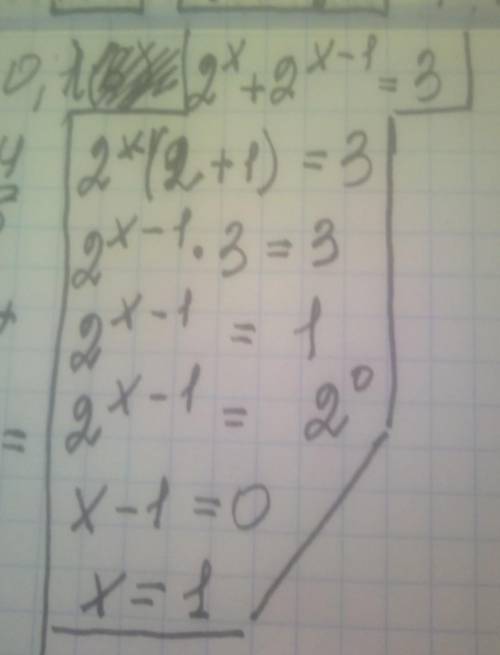 0, 1 2^x + 2^{x-1} = 3
2^x(2+1) = 3
2^{x-1} · 3 = 3
2^{x-1} = 1
2^{x-1} = 2^0
=
x-1=0
x=1